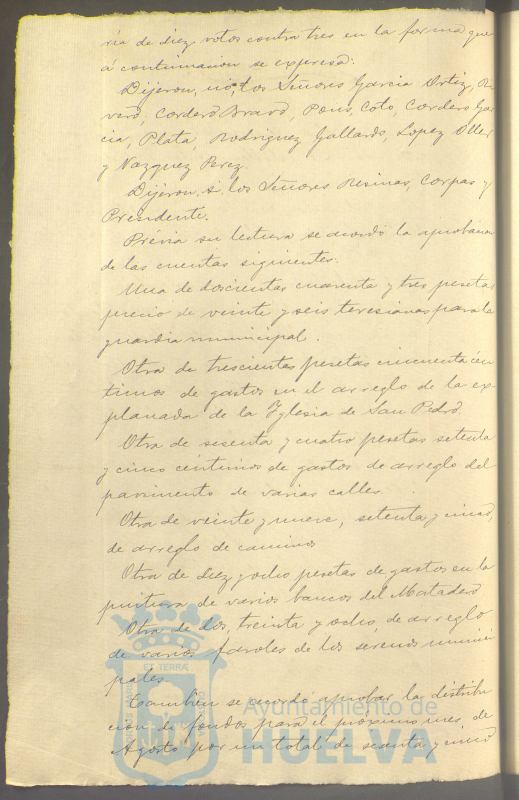 ría de diez votos contra tres en la forma que
á continuacion se expresa:
Dijeron, no, los Señores Garcia Ortiz, Ri
vero, Cordero Bravo, Pons, Coto, Cordero Gar
cia, Plata, Rodriguez Gallardo, Lopez Oller
y Vazquez Perez.
Dijeron, si, los Señores Resinas, Corpas y
Presidente.
Prévia su lectura se acordó la aprobacion
de las cuentas siguientes:
Una de doscientas cuarenta y tres pesetas
precio de veinte y seis teresianas para la
guardia municipal.
Otra de trescientas pesetas cincuenta cén
timos de gastos en el arreglo de la ex
planada de la Iglesia de San Pedro.
Otra de sesenta y cuatro pesetas setenta
y cinco céntimos de gastos de arreglo del
pavimento de varias calles.
Otra de veinte y nueve, setenta y cinco,
de arreglo de caminos
Otra de diez y ocho pesetas de gastos en la
pintura de varios bancos del Matadero
Otra de dos, treinta y ocho, de arreglo
de varios faroles de los serenos munici
pales.
Tambien se acordó aprobar la distribu
cion de fondos para el próximo mes de
Agosto por un total de sesenta y cinco
ET TERRÆ
Ayuntamiento de
HUELVA